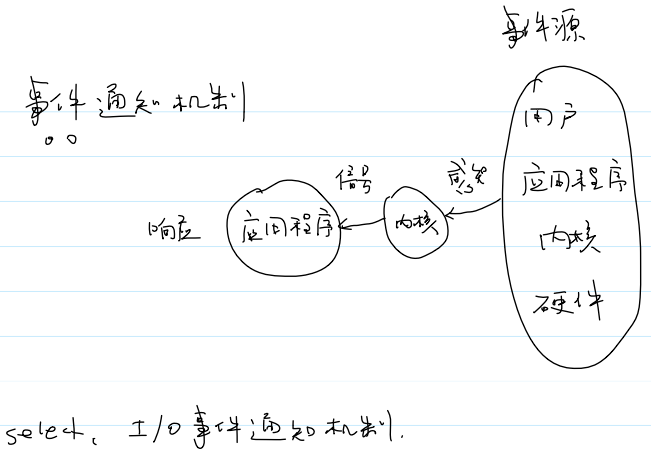 事件源
事件通知机制
用户
信号
感知
应用程序
响应
应用程序
内核
内核
硬件
select、I/O事件通知机制.